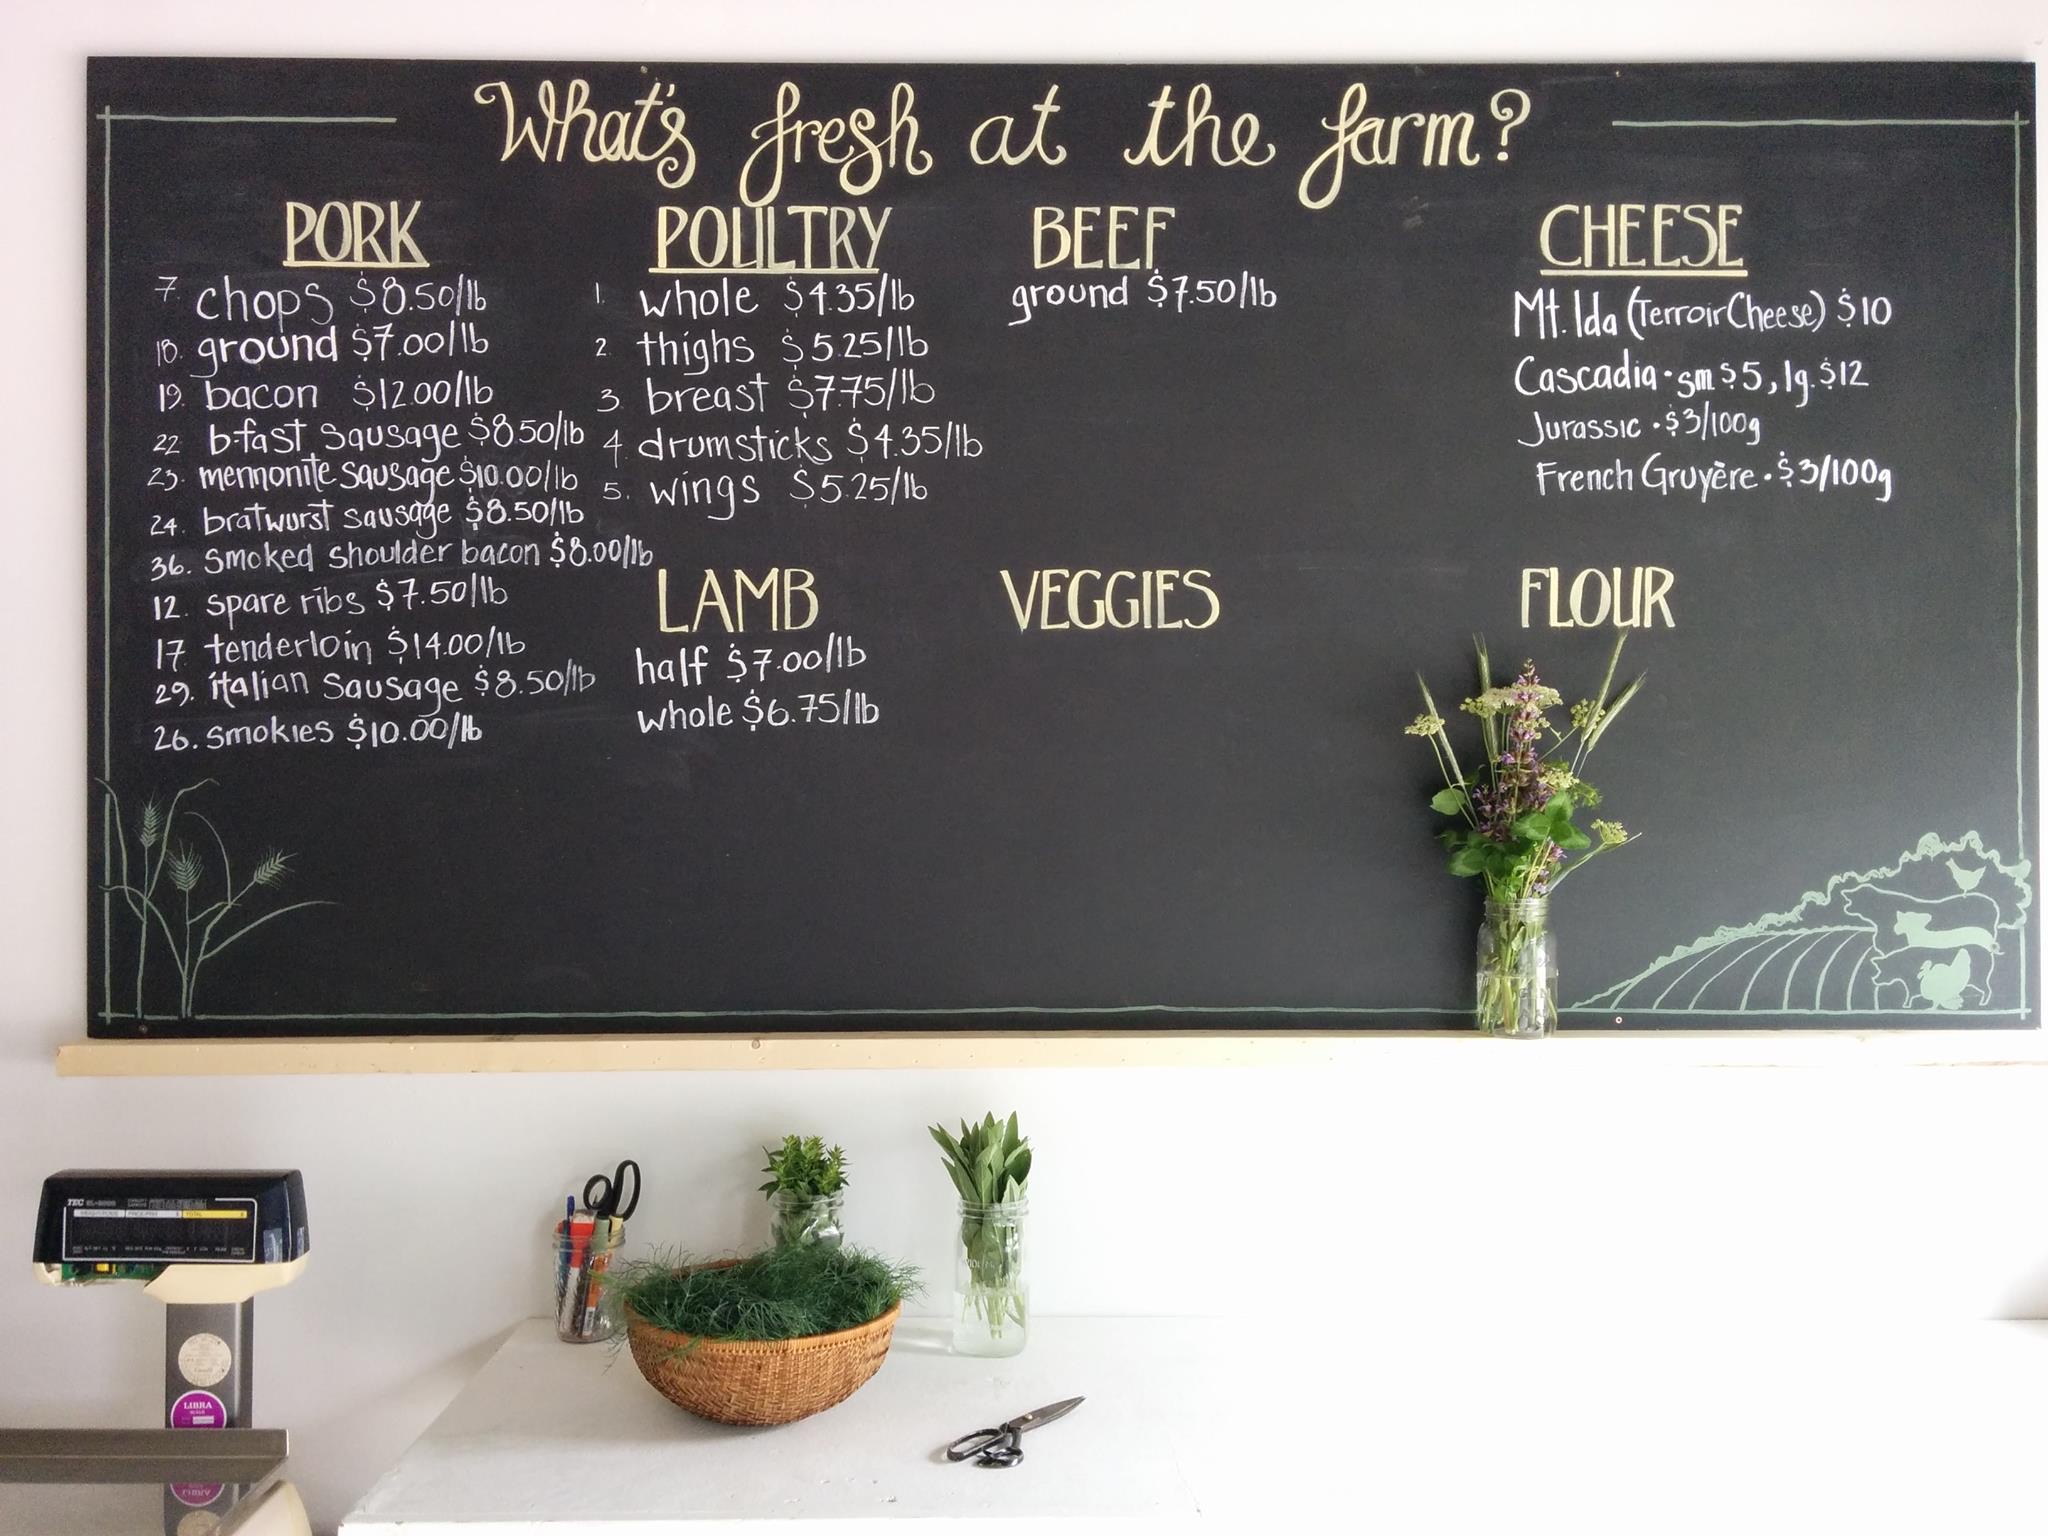 What's fresh at the farm?
PORK
7. chops $8.50/lb
18. ground $7.00/lb
19. bacon $12.00/lb
22 b-fast sausage $8.50/lb
23. mennonite sausage $10.00/lb
24. bratwurst sausage $8.50/lb
36. smoked shoulder bacon $8.00/lb
12. spare ribs $7.50/lb
17 tenderloin $14.00/lb
29. italian sausage $8.50/lb
26. smokies $10.00/lb
POULTRY
1. whole $4.35/lb
2. thighs $5.25/lb
3. breast $7.75/lb
4. drumsticks $4.35/lb
5. wings $5.25/lb
LAMB
half $7.00/lb
whole $6.75/lb
BEEF
ground $7.50/lb
VEGGIES
CHEESE
Mt. Ida (Terroir Cheese) $10
Cascadia • sm $5, lg. $12
Jurassic • $3/100g
French Gruyère • $3/100g
FLOUR
TEC
TOTAL
LIBRA